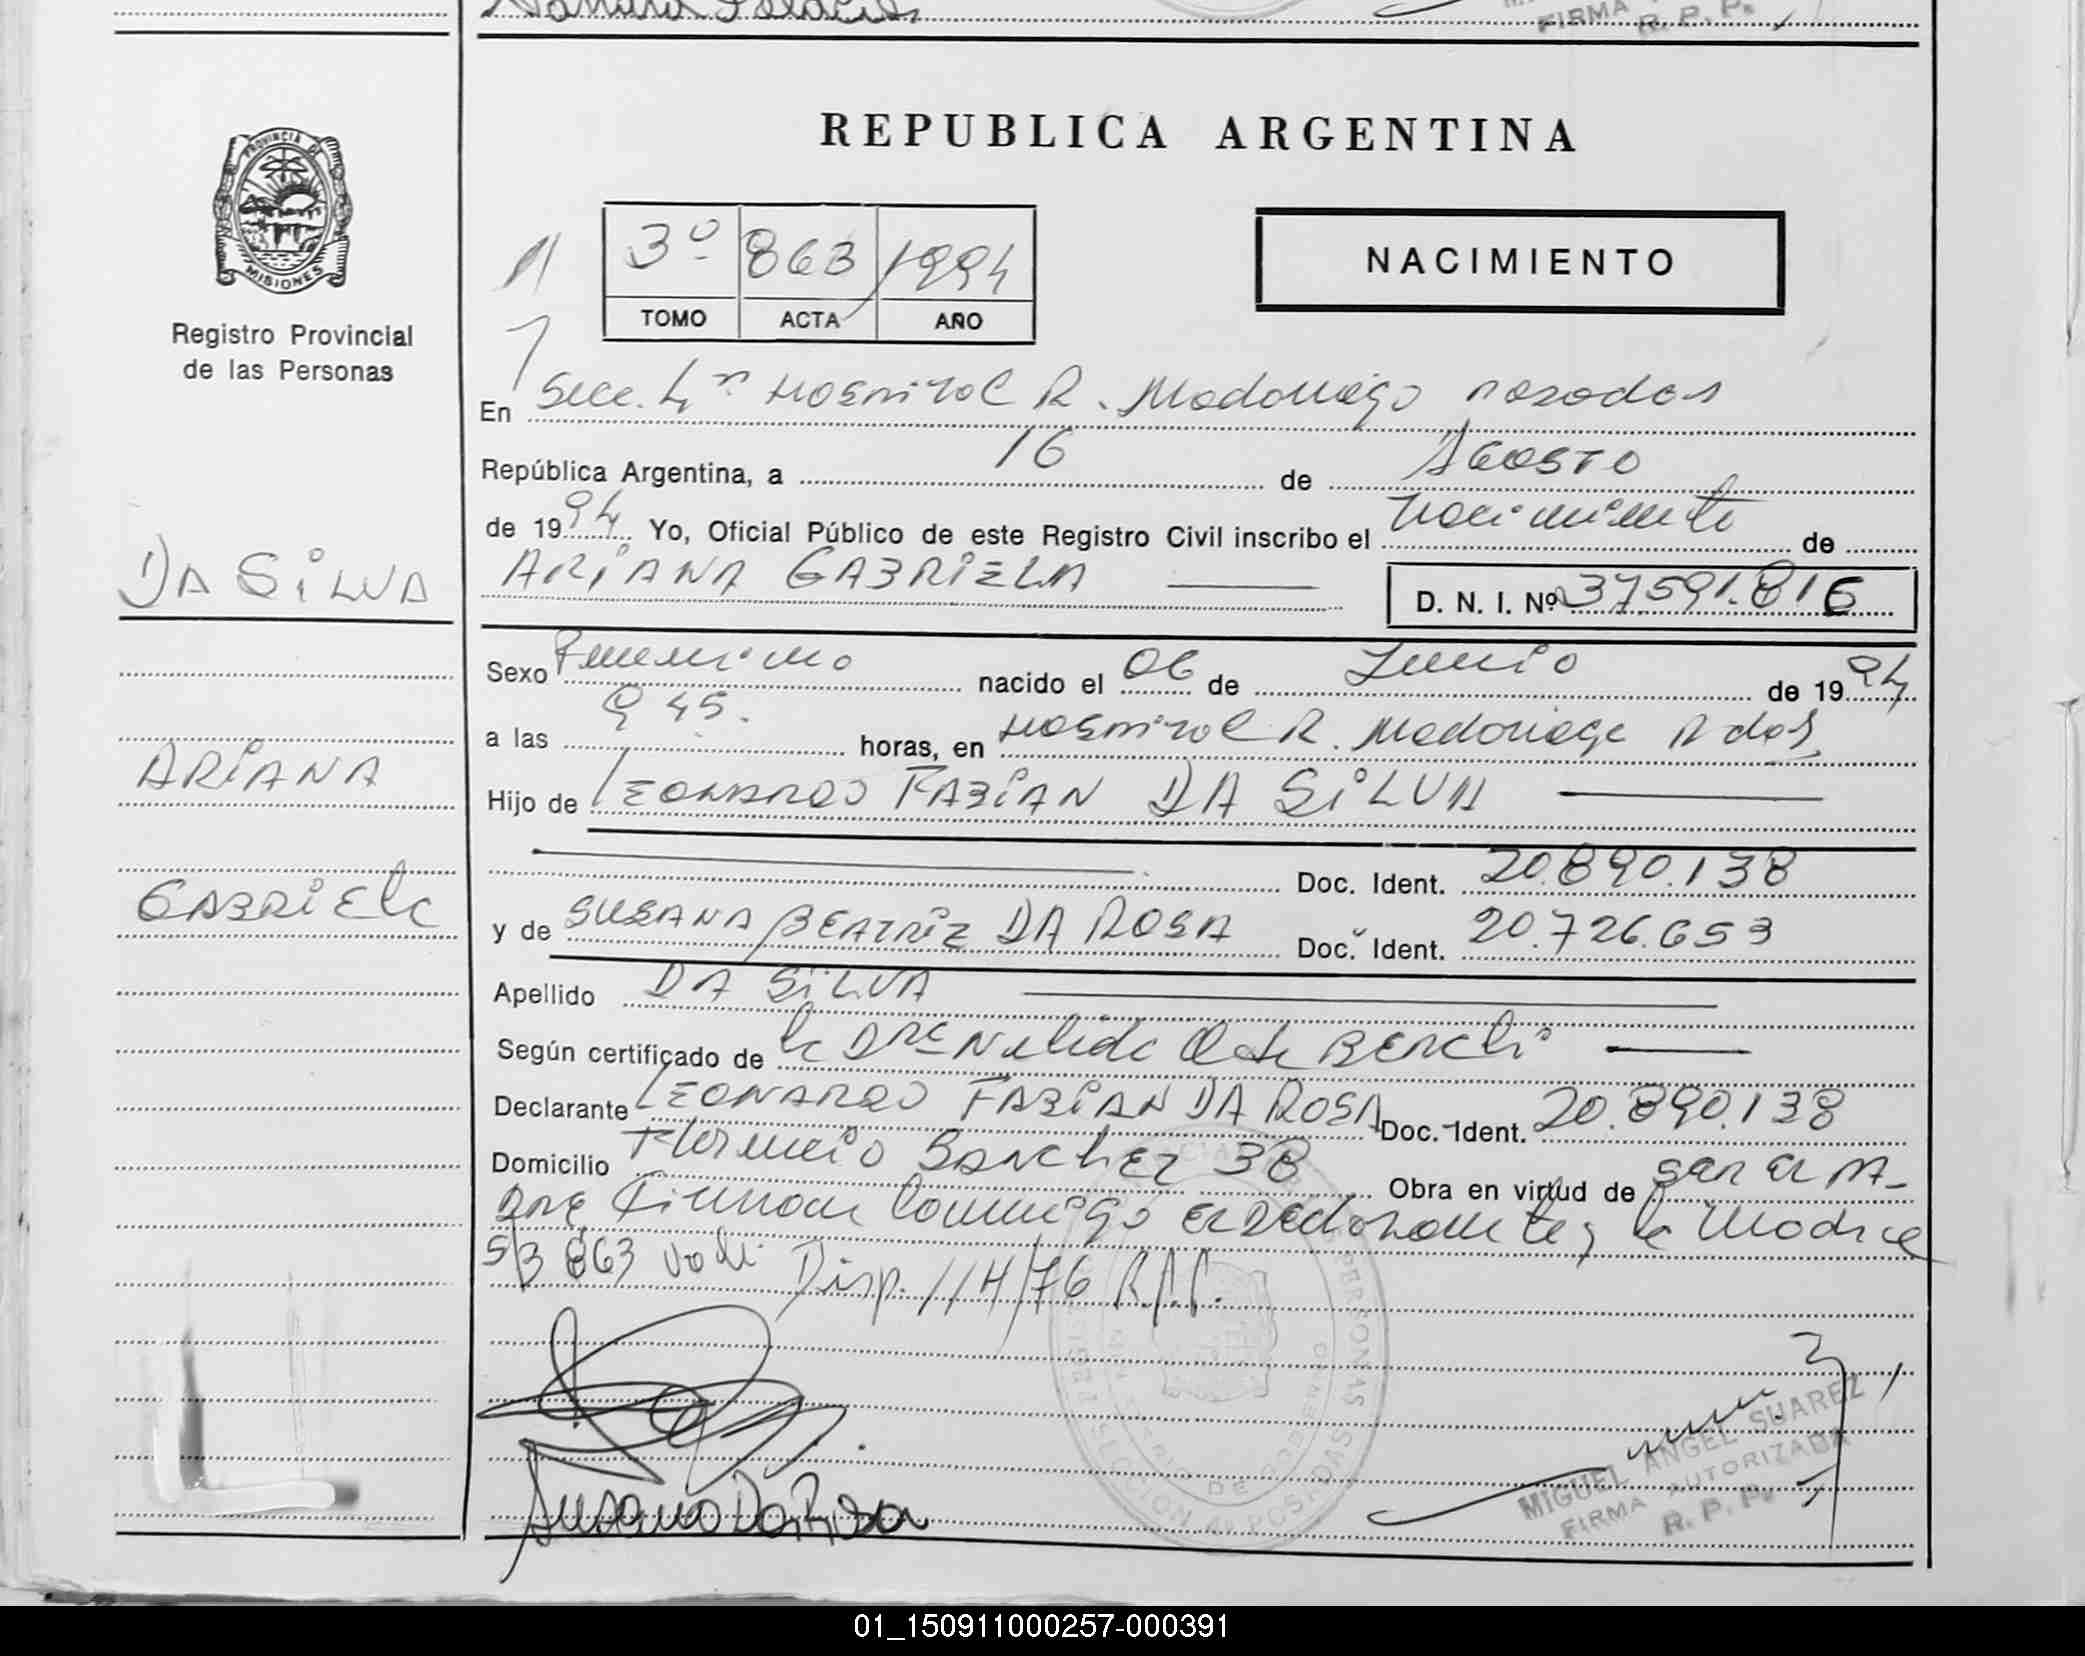 FIRMA
R. P. P.
REPUBLICA ARGENTINA
PROVINCIA DE
MISIONES
Registro Provincial
de las Personas
3º 863 1994
TOMO ACTA AÑO
NACIMIENTO
En Secc. 4ª Hospital R. Madariaga Posadas
República Argentina, a 16 de Agosto
de 1994 Yo, Oficial Público de este Registro Civil inscribo el nacimiento de
ARIANA GABRIELA D. N. I. Nº 37.591.816
DA SILVA
Sexo Femenino nacido el 06 de Junio de 1994
a las 9 45. horas, en Hospital R. Madariaga Pdas,
ARIANA
Hijo de LEONARDO FABIAN DA SILVA
Doc. Ident. 20.890.138
GABRIELA
y de SUSANA BEATRIZ DA ROSA Doc. Ident. 20.726.653
Apellido DA SILVA
Según certificado de la DRA
Declarante LEONARDO FABIAN DA ROSA Doc. Ident. 20.890.138
Domicilio Florencio SANCHEZ 38 Obra en virtud de ser el PA-
DRE Firman conmigo el Declarante y la Madre
S/B 863 vale Disp. 114/76 R.P.P.
Susana Da Rosa
MIGUEL ANGEL SUAREZ
FIRMA AUTORIZADA
R. P. P.
01_150911000257-000391